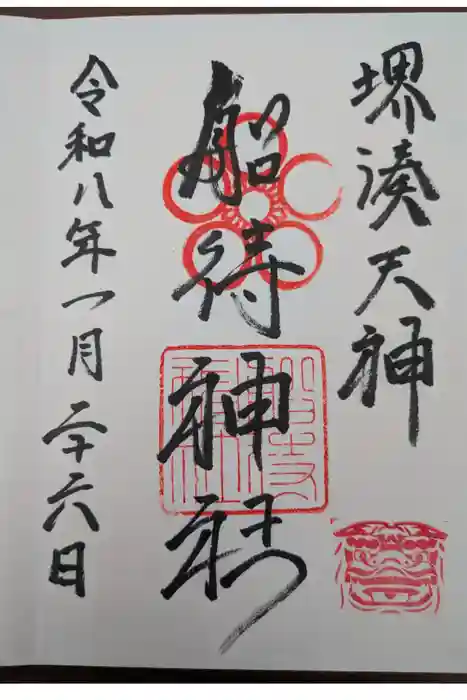 堺湊天神
船待神社
令和八年一月二十六日